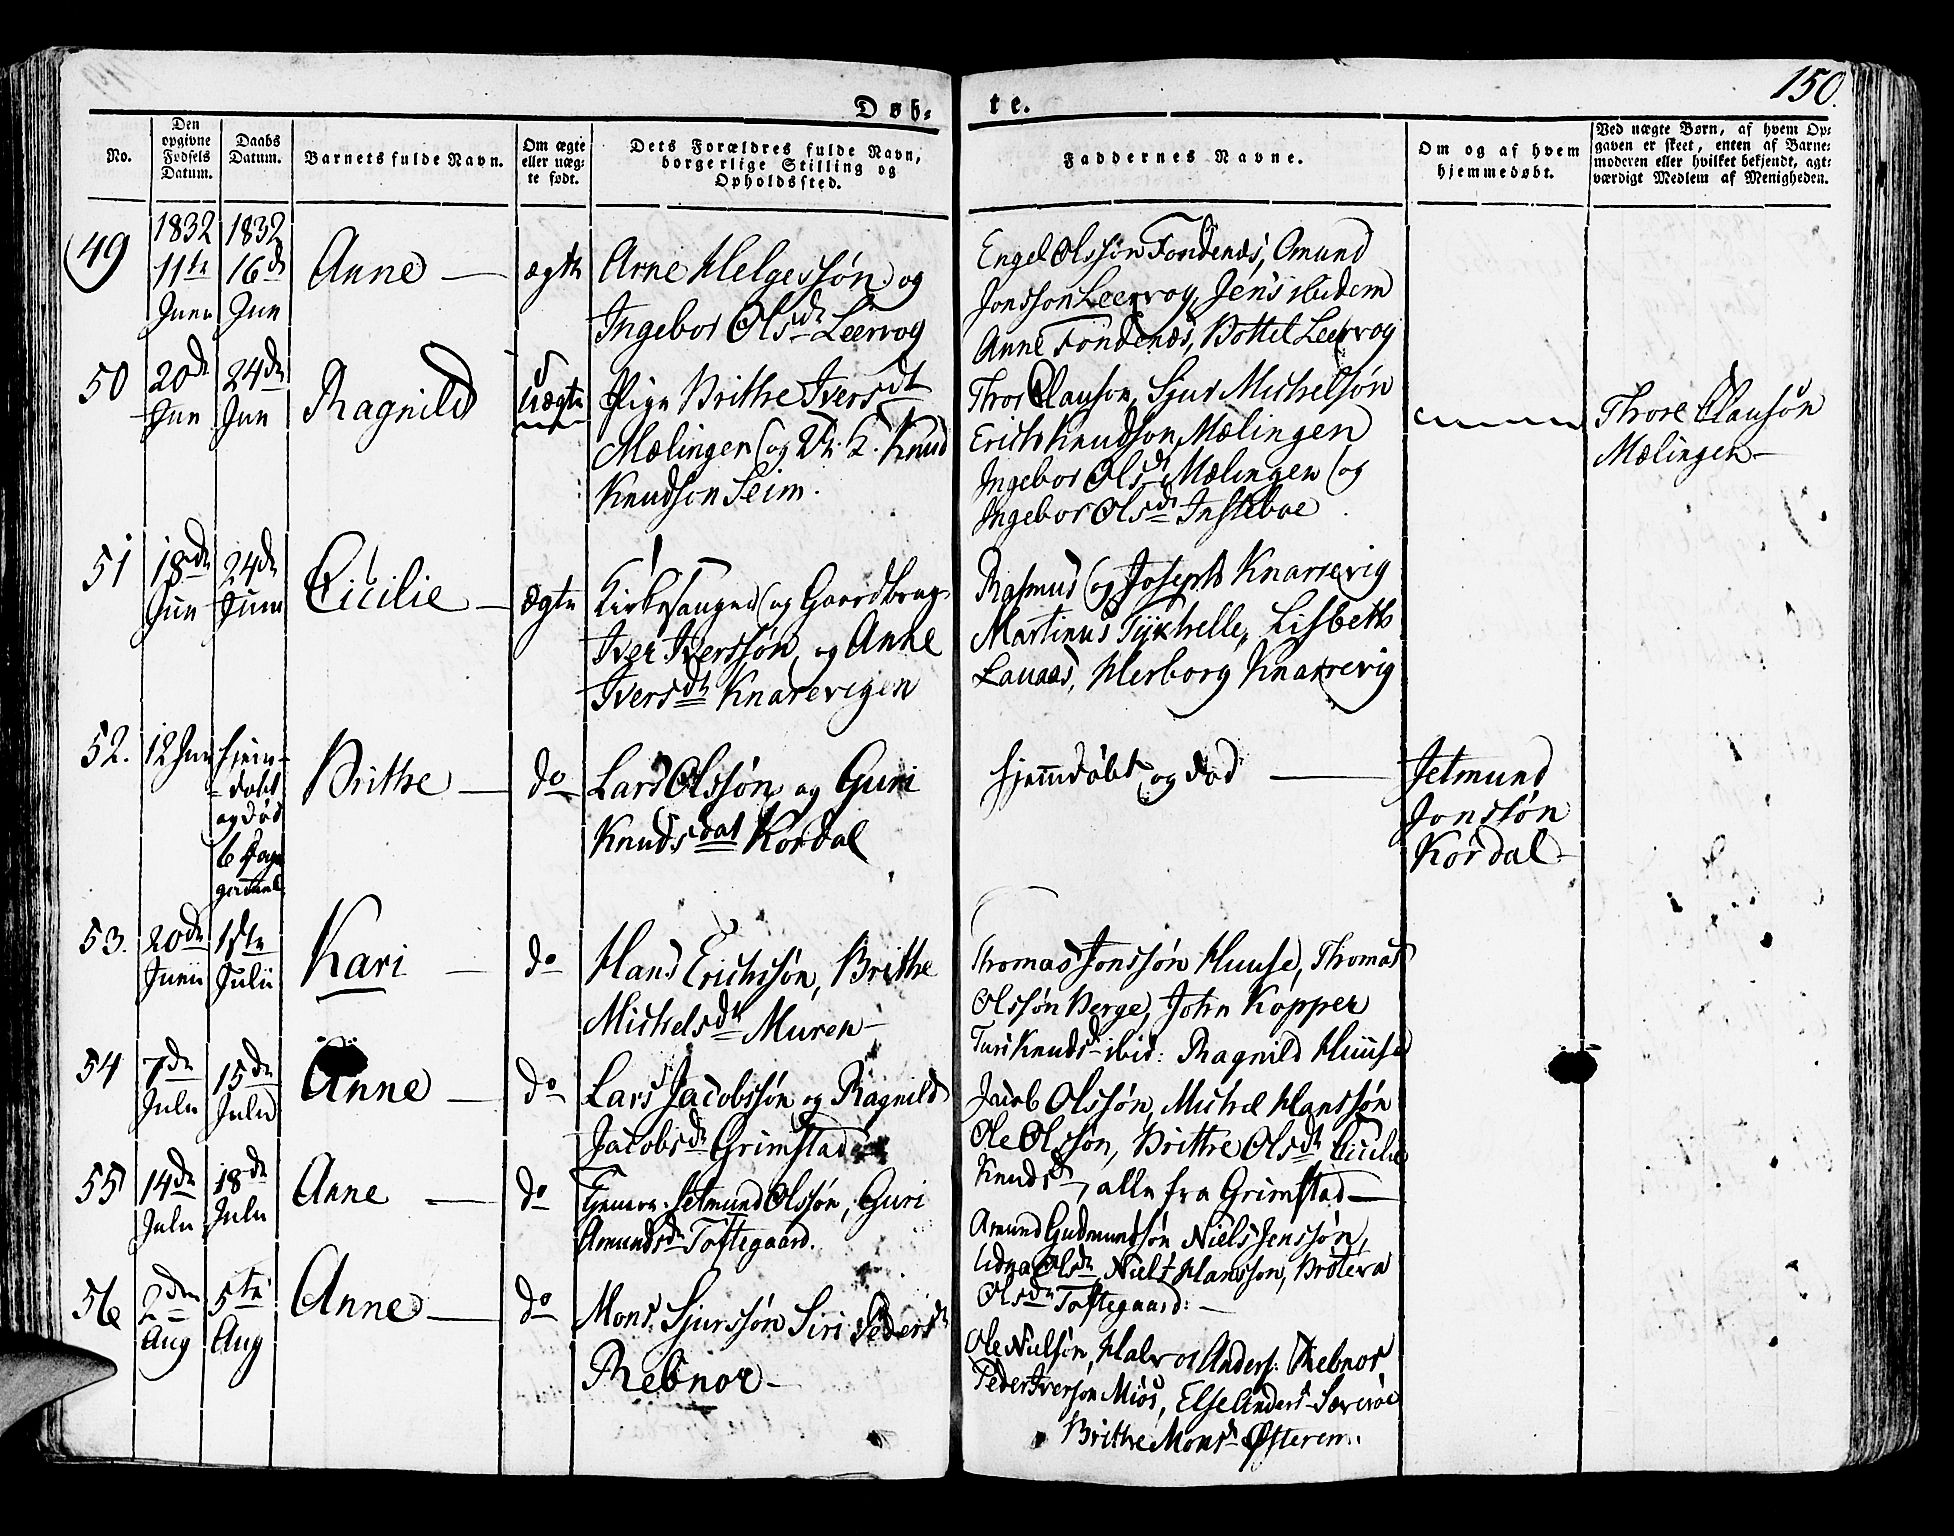 150.
Døb- te.
No.
Den opgivne Fødsels Datum.
Daabs Datum.
Barnets fulde Navn.
Om ægte eller uæg- te født.
Dets Forældres fulde Navn, borgerlige Stilling og Opholdssted.
Faddernes Navne.
Om og af hvem hjemmedøbt.
Ved uægte Børn, af hvem Op- gaven er skeet, enten af Barne- moderen eller hvilket bekjendt, agt- værdigt Medlem af Menigheden.
49
1832
11te
Juni
1832
16d
Jun
Anne
ægte
Arne Helgessøn og
Ingebor Olsdt Leervog
Engel Olssøn Fondenæs, Omund
Jonsson Leervog, Jens ibidem
Anne Fondenæs, Bottel Leervog
50
20de
Jun
24de
Jun
Ragnild
Uægte
Pige Brithe Iversdt
Mælingen og K. Knud
Knudson Seim.
Thor Olauson, Sjur Michelsøn
Erich Knudson Mælingen
Ingebor Olsdt Mælingen og
Ingebor Olsdt Insteboe
Thore Olausøn
Mælingen
51
18de
Jun
24de
Juni
Cicilie
ægte
Kirkesanger og Gaardbrug.
Iver Iverssøn og Anne
Iversdt Knarevigen
Rasmus og Joseph Knarrevig
Martinus Tyxhelle, Lisbeth
Lauaas, Herborg Knarrevig
52.
12 Jun
hjem-
døbt
og død
6 Dage
gammel
Brithe
do
Lars Olssøn og Guri
Knudsdat Kordal
hjemmdøbt og død
Jetmund
Jonssøn
Kordal
53.
20de
Junii
1ste
Julii
Kari
do
Hans Erichsøn, Brithe
Michelsdt Muren
Thomas Jonssøn Huuse, Thomas
Olssøn Berge, John Kopper
Turi Knudsd ibid: Ragnild Huuse
54
7de
Juli
15de
Juli
Anne
do
Lars Jacobssøn og Ragnild
Jacobsdt Grimstad
Jacob Olssøn, Michel Hanssøn
Ole Olssøn, Brithe Olsdt Cicilie
Knudsd, alle fra Grimstad
55
14de
Juli
18de
Juli
Anne
do
Jetmund Olssøn, Guri
Amundsdt Toftegaard.
Amund Gudmundsøn Niels Jenssøn,
Olsdt, Niels Hansson,
Olsdt Toftegaard:
56
2den
Aug
5te
Aug
Anne
do
Mons Sjurssøn Siri Pedersdt
Rebnor
Ole Nielsøn, Halvor Anders: Rebnor
Peder Iverson Miøs, Else Andersd
Brithe Monsd Østerem.